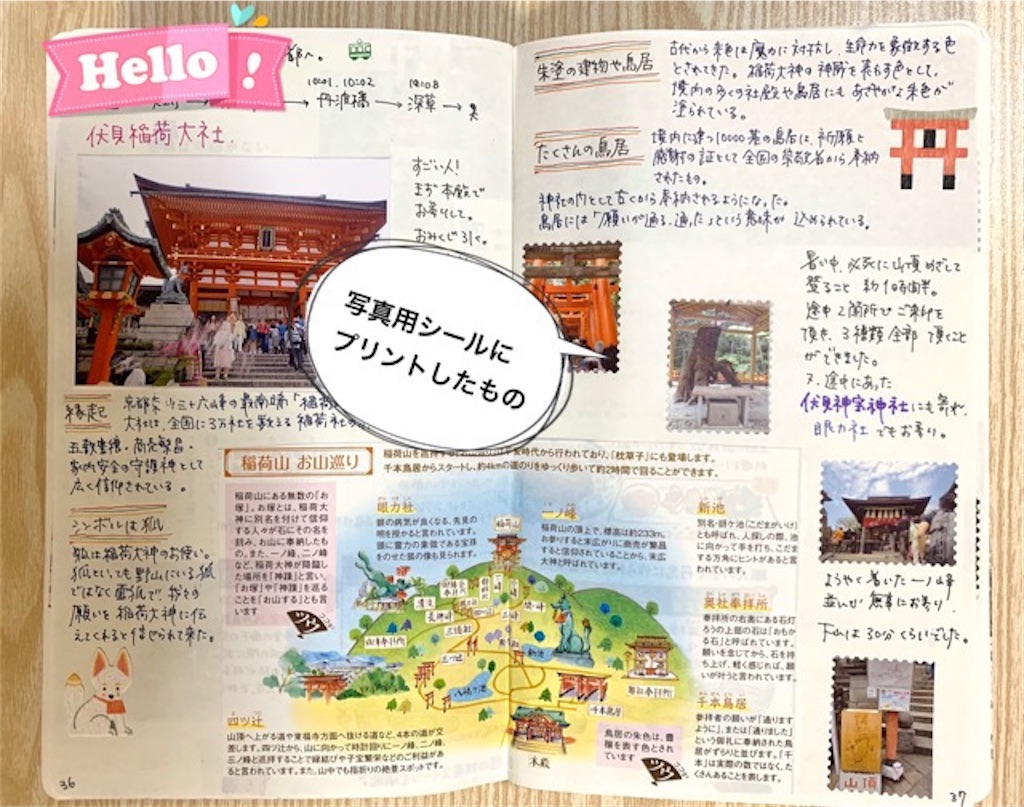 Hello !
都へ。
10:01 10:02
→ 丹波橋 → 深草 →
伏見稲荷大社.
すごい人!
まず本殿で
お参りして。
おみくじ引く。
写真用シールに
プリントしたもの
縁起
大社は、全国に3万社を数える稲荷社の
五穀豊穣・商売繁昌・
家内安全の守護神として
広く信仰されている。
シンボルは狐
狐は稲荷大神のお使い。
狐といっても野山にいる狐
ではなく霊狐で、我々の
願いを稲荷大神に伝
えてくれると信じられて来た。
36
朱塗の建物や鳥居
古代から朱色は魔力に対抗し、生命力を象徴する色
とされてきた。稲荷大神の神威を表す色として、
境内の多くの社殿や鳥居にもあざやかな朱色が
塗られている。
たくさんの鳥居
境内に建つ10000基の鳥居は、祈願と
感謝の証として全国の崇敬者から奉納
されたもの。
神社の門として古くから奉納されるようになった。
鳥居には「願いが通る、通った」という意味が込められている。
暑い中、必死に山頂めざして
登ること 約1時間半。
途中2箇所でご朱印を
頂き、3種類全部頂くこと
ができました。
又、途中にあった
伏見神宝神社にも寄れ、
眼力社でもお参り。
ようやく着いた一ノ峰
並んで無事にお参り.
下山は30分くらいでした。
山頂
37
稲荷山 お山巡り
時代から行われており、「枕草子」にも登場します。
千本鳥居からスタートし、約4kmの道のりをゆっくり歩いて約2時間で回ることができます。
稲荷山にある無数の「お
塚」。お塚とは、稲荷大
神に別名を付けて信仰
する人々が石にその名を
刻み、お山に奉納したも
の。また、一ノ峰、二ノ峰
など、稲荷大神が降臨し
た場所を「神蹟」と言い、
「お塚」や「神蹟」を巡る
ことを「お山する」とも言
います
ツウ
眼力社
眼の病気が良くなる、先見の
明を授かると言われています。
頭に霊力の象徴である宝珠
をのせた狐の像も見られます。
二ノ峰
稲荷山の頂上で、標高は約233m。
お参りすると末広がりに商売が繁昌
すると信仰されていることから、末広
大神と呼ばれています。
新池
別名・谺ケ池(こだまがいけ)
とも呼ばれ、人探しの際、池
に向かって手を打ち、こだま
する方角にヒントがあると言
われています。
奥社奉拝所
奉拝所の右奥にある石灯
ろうの上部の石は「おもか
る石」と呼ばれています。
願いを念じてから、石を持
ち上げ、軽く感じれば、願
いが叶うと言われています。
千本鳥居
参拝者の願いが「通ります
ように」、または「通りました」
という御礼に奉納された鳥
居がずらりと並びます。「千
本」は実際の数ではなく、た
くさんあることを表します。
稲荷山
三ツ辻
八嶋ケ池
新池
千本鳥居
本殿
四ツ辻
山頂へ上がる道や東福寺方面へ抜ける道など、4本の道が交
差します。四ツ辻から、山に向かって時計回りに一ノ峰、二ノ峰、
三ノ峰と巡拝することで縁結びや子宝繁栄などのご利益があ
ると言われています。また、山中でも指折りの絶景スポットです。
鳥居の朱色は、豊
穣を表す色とされ
ています
ツウ